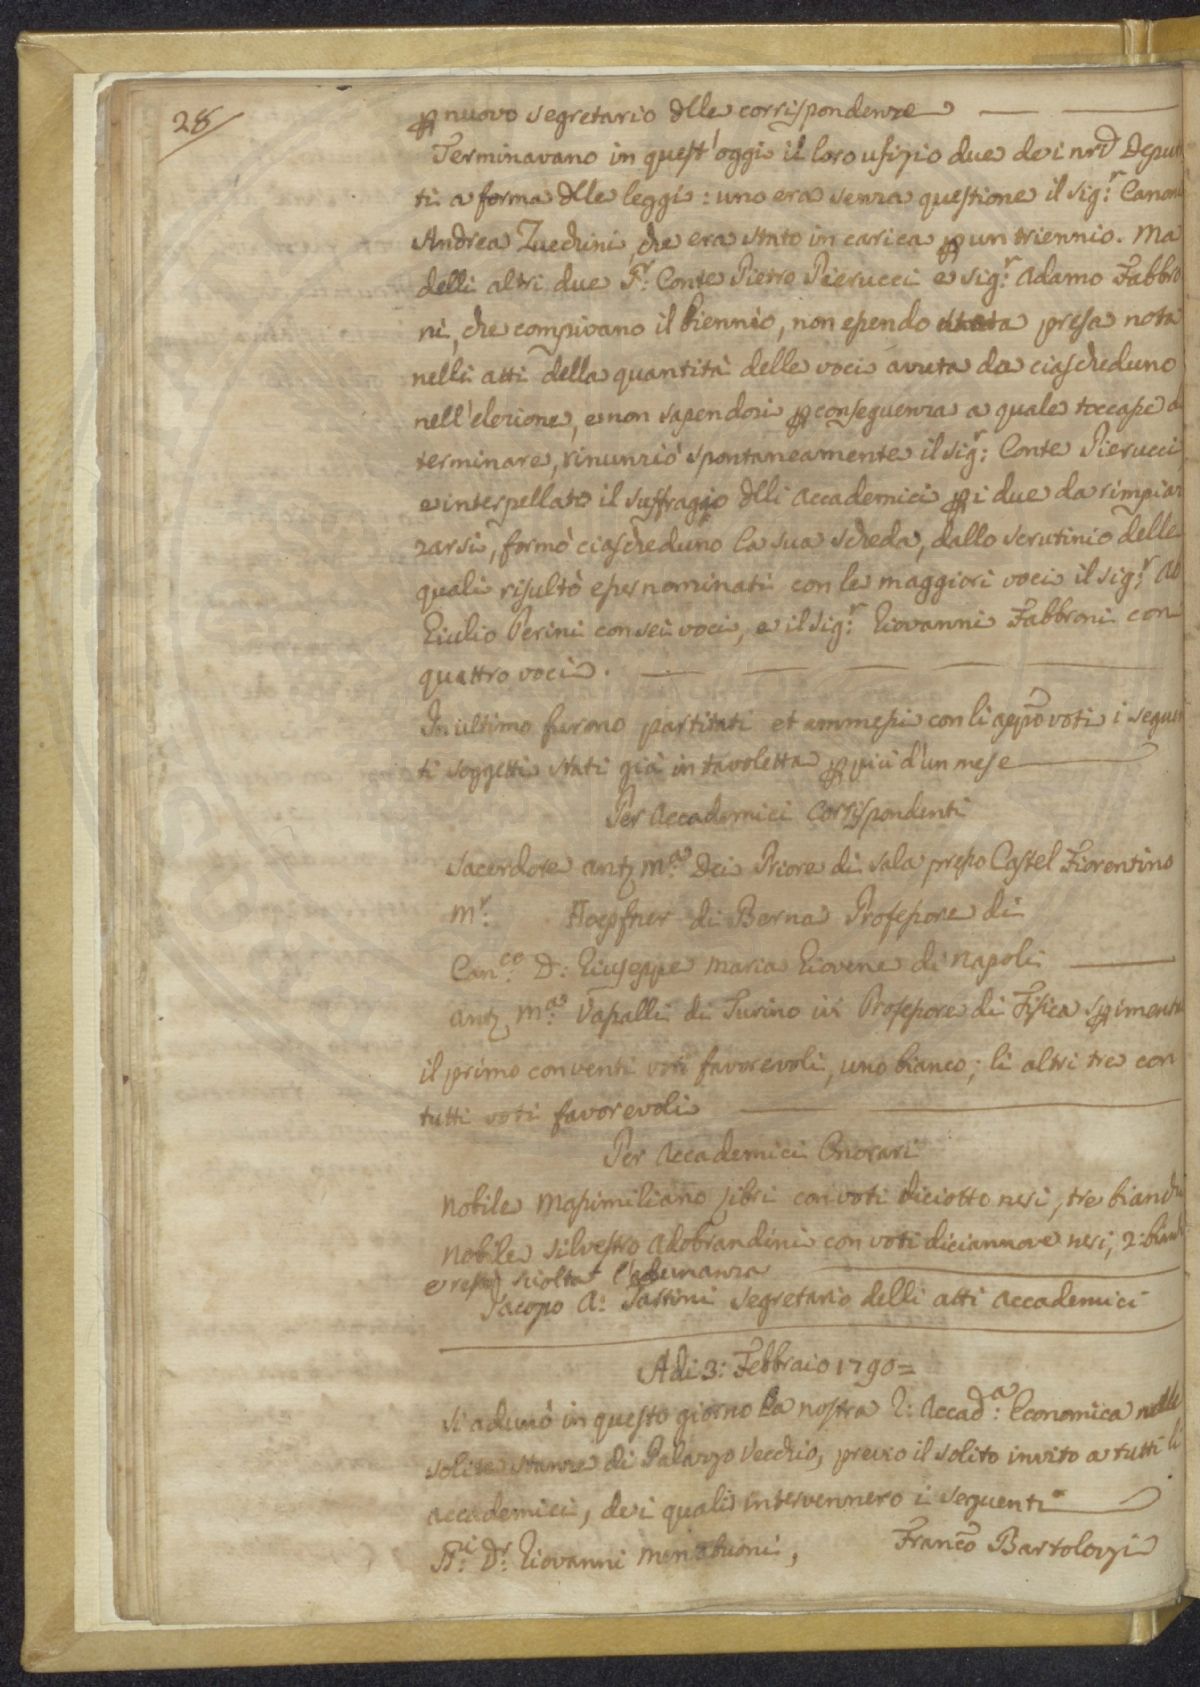 28
p nuovo segretario dlle corrispondenze
Terminavano in quest'oggi il loro ufizio due dei nri Deput
ti a forma dlle leggi: uno era senza questione il Sig.r Canon
Andrea Zucchini, che era stato in carica p un triennio. Ma
delli altri due Sr. Conte Pietro Pierucci e Sig.r Adamo Fabbro
ni, che compivano il biennio, non essendo stata presa nota
nelli atti della quantità delle voci avuta da ciascheduno
nell'elezione, e non sapendosi p conseguenza a quale toccasse a
terminare, rinunziò spontaneamente il Sig.r Conte Pierucci
e interpellato il suffragio dlli Accademici p i due da rimpiaz
zarsi, formò ciascheduno la sua scheda, dallo scrutinio delle
quali risultò esser nominati con le maggiori voci il Sig.r Ab
Giulio Perini con sei voci, e il Sig.r Giovanni Fabbroni con
quattro voci.
In ultimo furono partitati et ammessi con li appo voti i seguen
ti soggetti stati già in tavoletta p più d'un mese
Per Accademici Corrispondenti
Sacerdote Anto M.a Dei Priore di Sala presso Castel Fiorentino
M.r Hoepfner di Berna Professore di
Can.co D: Giuseppe Maria Giovene di Napoli
Anto M.a Vassalli di Turino ivi Professore di Fisica Spimenta
il primo con venti voti favorevoli, uno bianco; li altri tre con
tutti voti favorevoli
Per Accademici Onorari
Nobile Massimiliano Libri con voti diciotto neri, tre bianchi
Nobile Silvestro Adobrandini con voti diciannove neri, 2: bianchi
e restò sciolta l'adunanza
Jacopo A: Tartini Segretario delli atti Accademici
Adi 3: Febbraio 1790=
Si adunò in questo giorno la nostra R: Accad.a Economica nelle
solite stanze di Palazzo Vecchio, previo il solito invito a tutti li
accademici, dei quali intervennero i seguenti
SS.i D.r Giovanni Menabuoni, Franco Bartolozzi